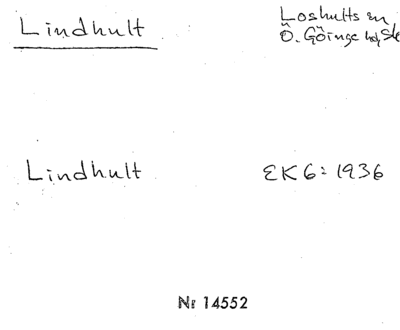 Lindhult
Loshults sn
Ö. Göinge hd, Sk
Lindhult
EK6: 1936
Nr 14552